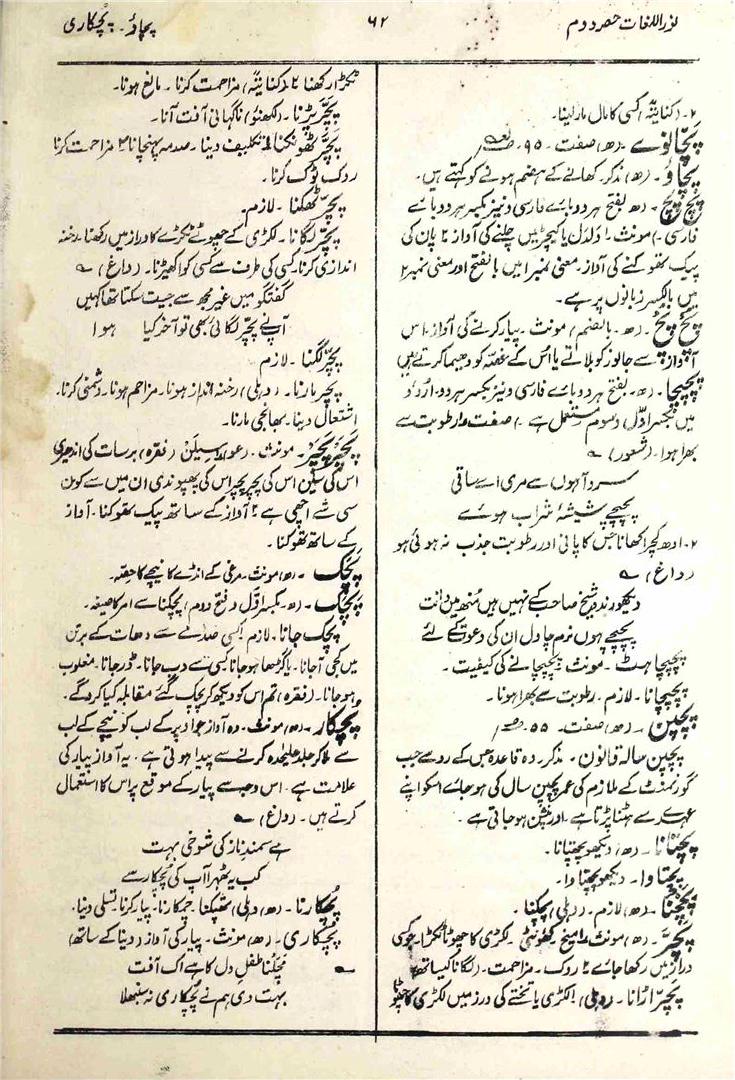 نوراللغات حصہ دوم
۶۲
پچاؤ۔ پچکاری
۲۔ (کنایتہً) کسی کا مال مار لینا۔
پچانوے۔ (ھ) صفت۔ ۹۵۔
پچاؤ۔ (ھ) مذکر۔ کھانے کے ہضم ہونے کو کہتے ہیں۔
پچ پچ۔ (ھ۔ بفتح ہر دو بائے فارسی و نیز بکسر ہر دو بائے
فارسی۔) مونث۔ ۱۔ دلدل یا کیچڑ میں چلنے کی آواز ۲۔ پان کی
پیک تھوکنے کی آواز۔ معنی نمبر ۱ میں بالفتح اور معنی نمبر ۲
میں بالکسر زبانوں پر ہے۔
پچ پچ۔ (ھ۔ بالضم) مونث۔ پیار کرنے کی آواز۔ اس
آواز سے جانور کو بلاتے یا اُس کے غصّہ کو دھیما کرتے ہیں
پچپچا۔ (ھ۔ بفتح ہر دو بائے فارسی و نیز بکسر ہر دو۔ اردو
میں بکسر اوّل و سوم مستعمل ہے۔) صفت ۱۔ رطوبت سے
بھرا ہوا۔ (شعور) ؎
سرد آہوں سے مری اے ساقی
پچپچے شیشۂ شراب ہوئے
۲۔ ادھ کچرا کھانا جس کا پانی اور رطوبت جذب نہ ہوئی ہو
(داغ) ؎
دیکھو رندو شیخ صاحب کے نہیں ہیں منھ میں دانت
پچپچے ہوں نرم چاول ان کی دعوت کے لئے
پچپچاہٹ۔ مونث۔ پچپچانے کی کیفیت۔
پچپچانا۔ لازم۔ رطوبت سے بھرا ہونا۔
پچپن۔ (ھ) صفت۔ ۵۵۔
پچپن سالہ قانون۔ مذکر۔ وہ قاعدہ جس کے رو سے جب
گورنمنٹ کے ملازم کی عمر پچپن سال کی ہو جائے اسکو اپنے
عہدے سے ہٹنا پڑتا ہے۔ اور پنشن ہو جاتی ہے۔
پچتانا۔ (ھ) دیکھو پچھتانا۔
پچتاوا۔ دیکھو پچھتاوا۔
پچنا۔ (ھ) لازم۔ (دہلی) پچکنا۔
پچر۔ (ھ) مونث ۱۔ میخ۔ کھونٹی۔ لکڑی کا چھوٹا ٹکڑا۔ جو کسی
دراز میں رکھا جائے ۲۔ روک۔ مزاحمت۔ (لگانا کیساتھ)
پچر اڑانا۔ (دہلی) ۱۔ لکڑی یا تختے کی درز میں لکڑی کا چھوٹا
ٹکڑا رکھنا ۲۔ (کنایتہً) مزاحمت کرنا۔ مانع ہونا۔
پچر پڑنا۔ (لکھنؤ) ناگہانی آفت آنا۔
پچر ٹھونکنا ۱۔ تکلیف دینا۔ صدمہ پہنچانا ۲۔ مزاحمت کرنا
روک ٹوک کرنا۔
پچر ٹھکنا۔ لازم۔
پچر لگانا۔ لکڑی کے چھوٹے ٹکڑے کا دراز میں رکھنا۔ رخنہ
اندازی کرنا۔ کسی کی طرف سے کسی کو اکھیڑنا۔ (داغ) ؎
گفتگو میں غیر مجھ سے جیت سکتا تھا کہیں
آپ نے پچر لگائی بھی تو آخر کیا ہوا
پچر لگنا۔ لازم
پچر مارنا۔ (دہلی) رخنہ انداز ہونا۔ مزاحم ہونا۔ دشمنی کرنا۔
اشتعال دینا۔ بھانجی مارنا۔
پچر پچر۔ مونث۔ (عو) ۱۔ سیلن (فقرہ) برسات کی اندھیری
اس کی سیلن اس کی پچر پچر اس کی پھپوندی ان میں سے کون
سی شے اچھی ہے ۲۔ آواز کے ساتھ پیک تھوکنا۔ آواز
کے ساتھ تھوکنا۔
پچک۔ (ھ) مونث۔ مرغی کے انڈے کا نیچے کا حصّہ۔
پچک۔ (ھ۔ بکسر اوّل و فتح دوم) پچکنا سے امر کا صیغہ۔
پچک جانا۔ لازم ۱۔ کسی صدمے سے دھات کے برتن
میں کجی آجانا۔ یا گڑھا ہو جانا ۲۔ کسی سے دب جانا۔ ڈر جانا۔ مغلوب
ہو جانا۔ (فقرہ) تم اس کو دیکھ کر پچک گئے مقابلہ کیا کرو گے۔
پچکار۔ (ھ) مونث۔ وہ آواز جو اوپر کے لب کو نیچے کے لب
سے ملا کر جلد علیحدہ کرنے سے پیدا ہوتی ہے۔ یہ آواز پیار کی
علامت ہے۔ اس وجہ سے پیار کے موقع پر اس کا استعمال
کرتے ہیں۔ (داغ) ؎
ہے سمندِ ناز کی شوخی بہت
کب یہ ٹھہرا آپ کی پچکار سے
پچکارنا۔ (ھ) (دہلی) تھپکنا۔ چمکارنا۔ پیار کرنا۔ تسلی دینا۔
پچکاری۔ (ھ) مونث۔ پیار کی آواز (دینا کے ساتھ)
؎ مچلنا طفلِ دل کا ہے اک آفت
بہت دی ہم نے پچکاری نہ سنبھلا